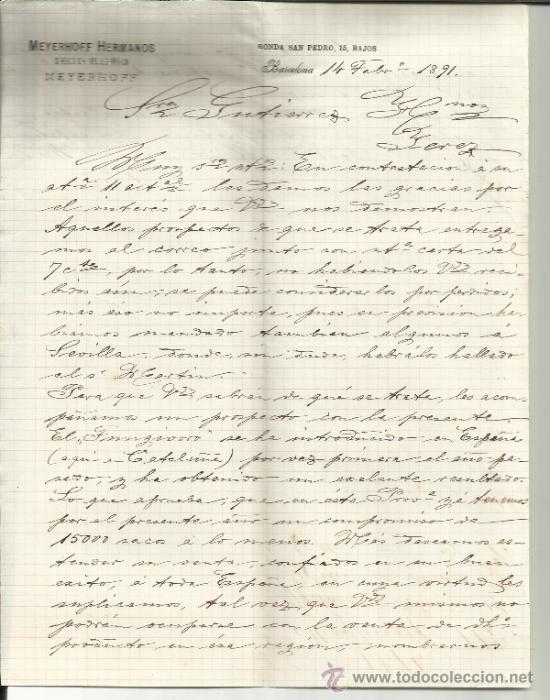 MEYERHOFF HERMANOS
MEYERHOFF
RONDA SAN PEDRO, 15, BAJOS
Barcelona 14 Febrº 1891.
Sres Gutierrez Hnos
Jerez
Muy Sres ntros: En contestacion á su
atª 11 act. les damos las gracias por
el interés que Vds nos demostran.
Aquellos prospectos de que se trata entrega-
mos al correo junto con ntª carta del
7 cte, por lo tanto, no habiendolos Vds reci-
bidos aún, se puede considerarlos por perdidos;
más eso no importa, pues en prevision ha-
biamos mandado tambien algunos á
Sevilla donde, sin duda, habralos hallado
el Sr Martin.
Para que Vds sabrán de qué se trata, les acom-
pañamos un prospecto con la presente
El „Fungivoro" se ha introducido en España
(aqui en Cataluña) por vez primera el año pa-
sado y ha obtenido un exelente resultado.
Lo que aprueba, que en esta Provª yá tenemos
por el presente año un compromiso de
15000 sacos á lo menos. Más deseamos es-
tender su venta, confiados en su buen
exito, á toda España, en cuya virtud les
suplicamos, tal vez que Vds mismos no
podrán ocuparse con la venta de dho
producto en esa región, nombrarnos
todocoleccion
www.todocoleccion.net